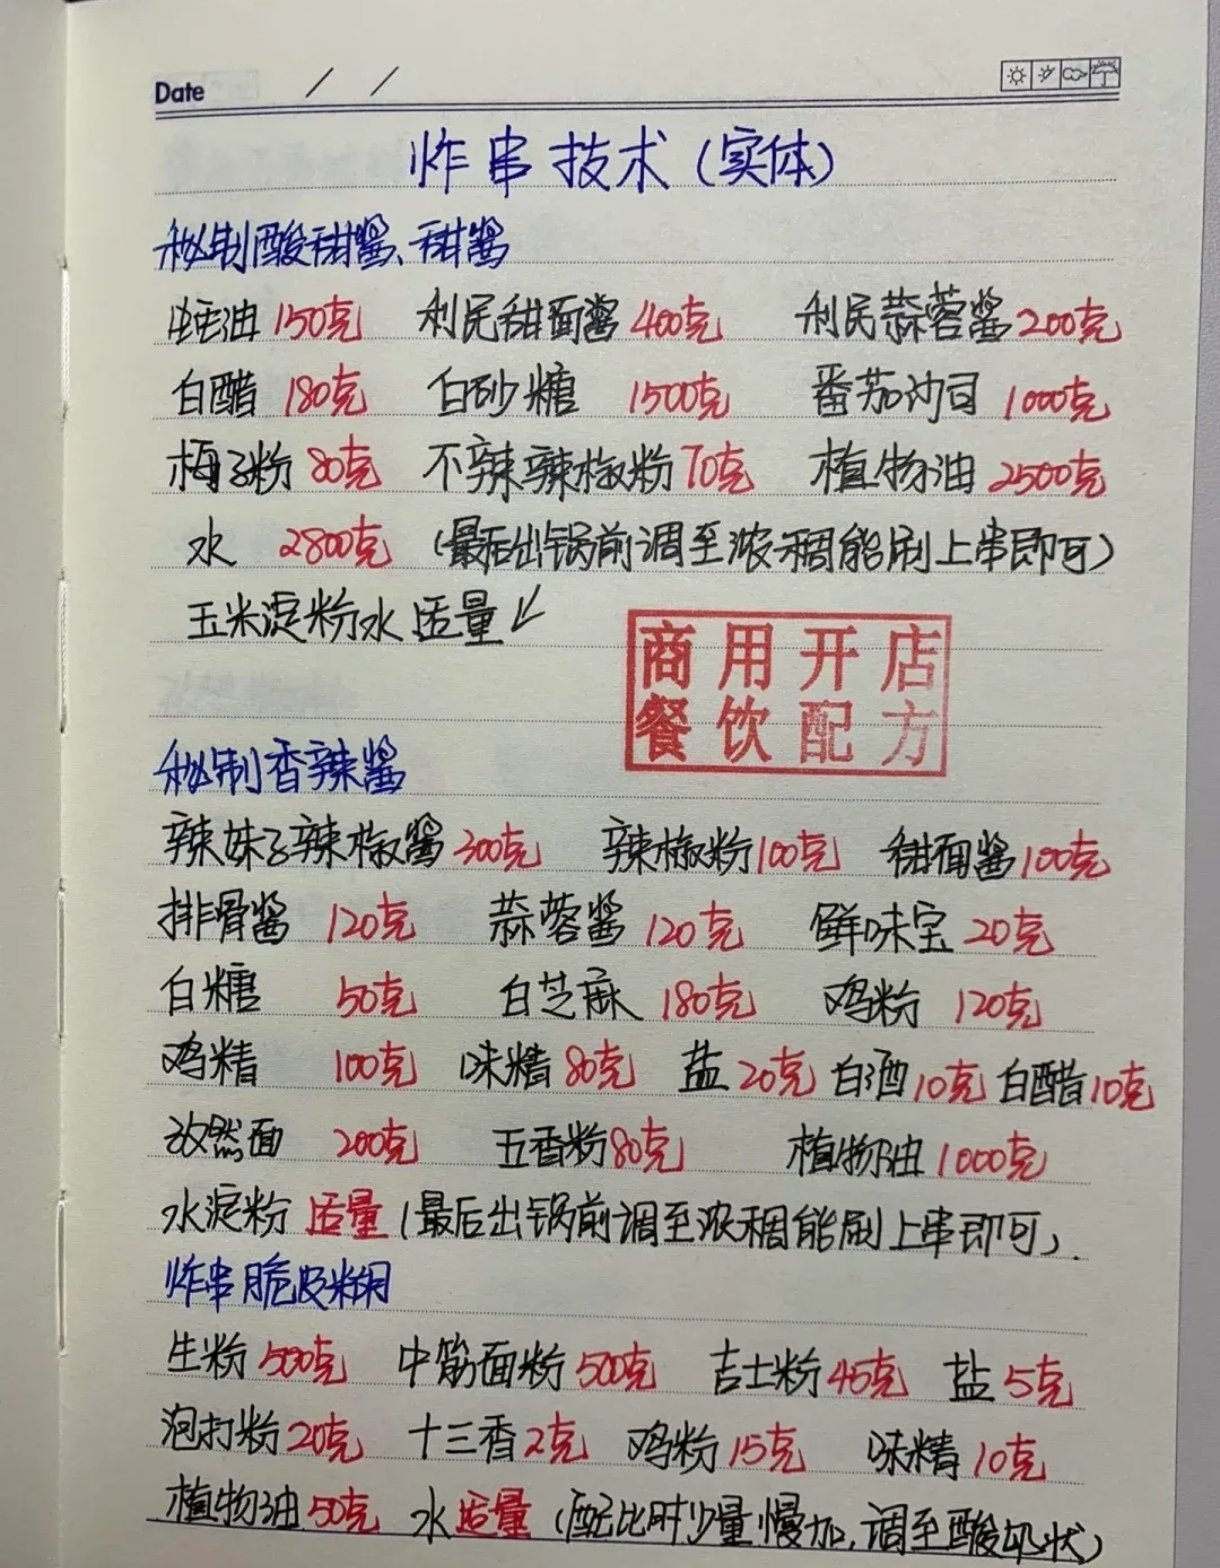 Date / /
炸串技术(实体)
秘制酸甜酱、甜酱
蚝油 150克 利民甜面酱 400克 利民蒜蓉酱 200克
白醋 180克 白砂糖 1500克 番茄沙司 1000克
梅子粉 80克 不辣辣椒粉 70克 植物油 2500克
水 2800克 (最后出锅前调至浓稠能刷上串即可)
玉米淀粉水 适量↙
商用开店
餐饮配方
秘制香辣酱
辣妹子辣椒酱 300克 辣椒粉 100克 甜面酱 100克
排骨酱 120克 蒜蓉酱 120克 鲜味宝 20克
白糖 50克 白芝麻 180克 鸡粉 120克
鸡精 100克 味精 80克 盐 20克 白酒 10克 白醋 10克
孜然面 200克 五香粉 80克 植物油 1000克
水淀粉 适量(最后出锅前调至浓稠能刷上串即可).
炸串脆皮糊
生粉 500克 中筋面粉 500克 吉士粉 45克 盐 5克
泡打粉 20克 十三香 2克 鸡粉 15克 味精 10克
植物油 50克 水 适量 (配比时少量慢加,调至酸奶状)